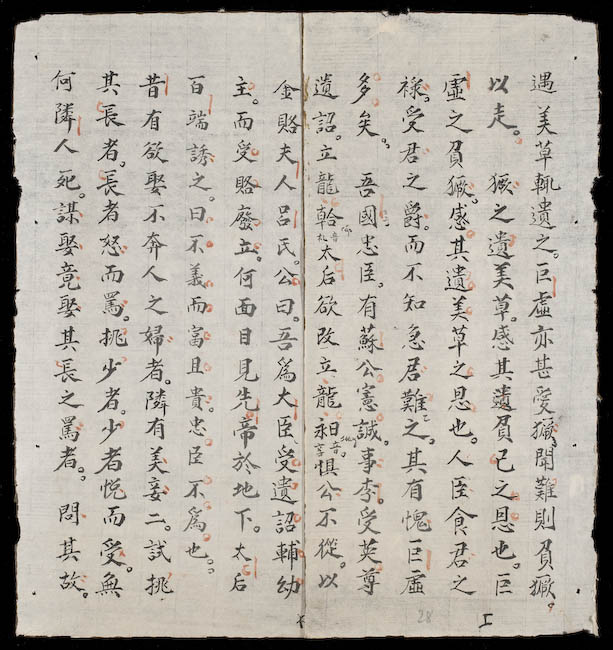 遇美草輒遺之。巨虛亦甚受獗。聞難則負獗。
以走。獗之遺美草。感其遺負己之恩也。巨
虛之負獗。感其遺美草之恩也。人臣食君之
祿。受君之爵。而不知急君難之。其有愧巨虛
多矣。吾國忠臣。有蘇公憲誠。事李。受英尊
遺詔。立龍太后欲改立龍惧公不從。以
金賂夫人呂氏。公曰。吾爲大臣受遺詔輔幼
主。而受賂廢立。何面目見先帝於地下。太后
百端誘之。曰不義而富且貴。忠臣不爲也。
昔有欲娶不奔人之婦者。隣有美妾二。試挑
其長者。長者怒而罵。挑少者。少者悅而受。無
何隣人死。謀娶竟娶其長之罵者。問其故。
28